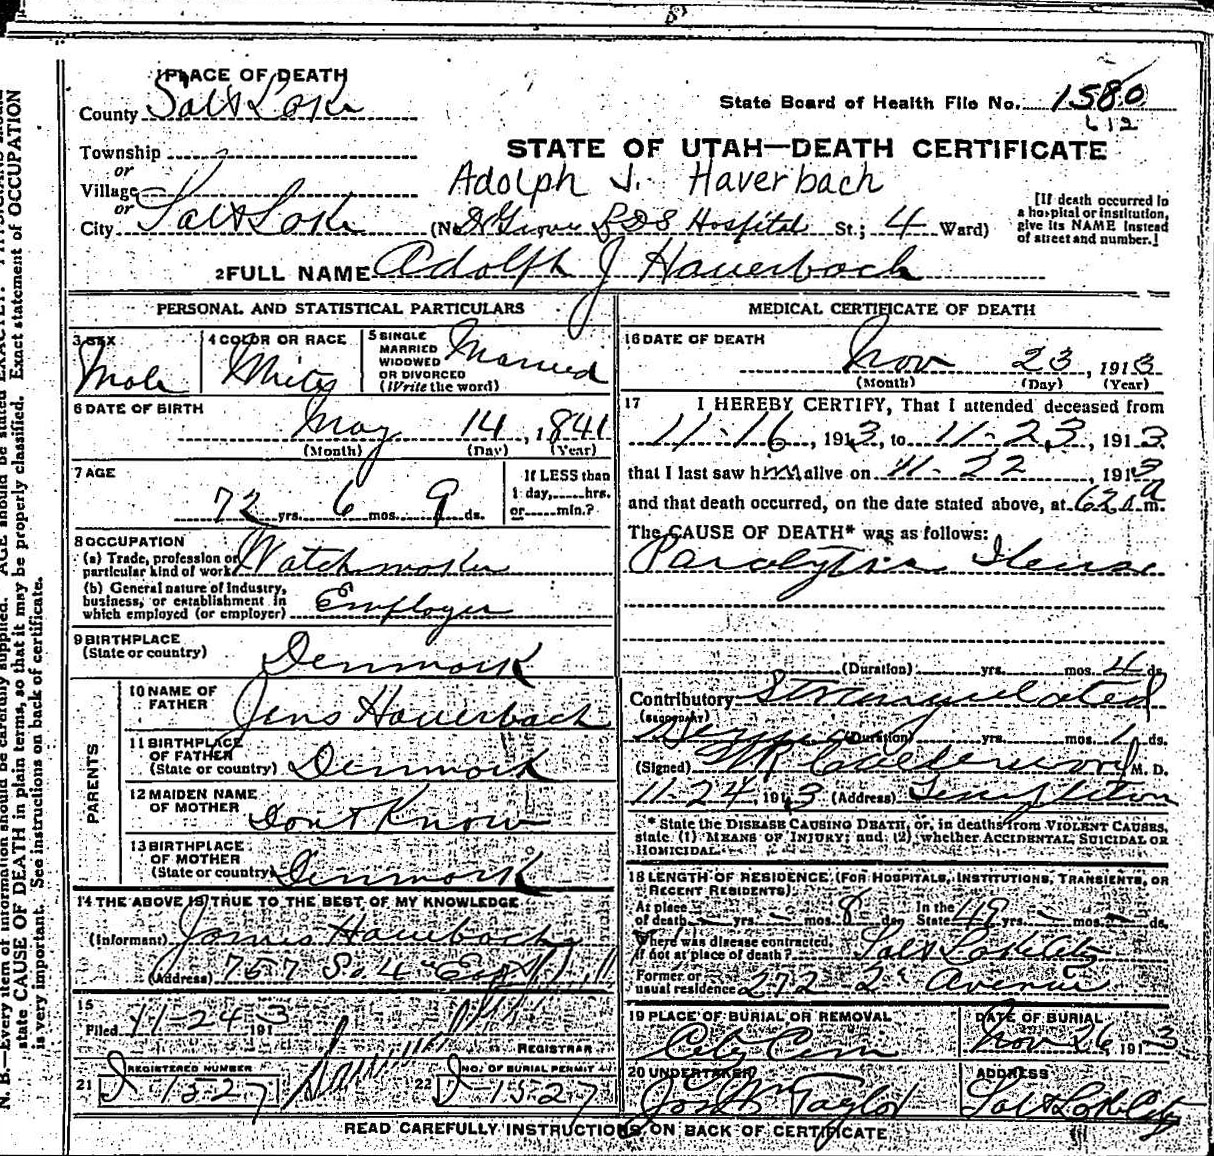 1 PLACE OF DEATH
County Salt Lake
State Board of Health File No. 1580
612
Township
or
Village
or
City Salt Lake
STATE OF UTAH—DEATH CERTIFICATE
Adolph J. Haverbach
(No. LDS Hospital St.; 4 Ward)
[If death occurred in
a hospital or institution,
give its NAME instead
of street and number.]
2 FULL NAME Adolph J Hauerbach
PERSONAL AND STATISTICAL PARTICULARS
3 SEX
Male
4 COLOR OR RACE
White
5 SINGLE
MARRIED
WIDOWED
OR DIVORCED
(Write the word)
Married
6 DATE OF BIRTH
May 14, 1841
(Month) (Day) (Year)
7 AGE
72 yrs. 6 mos. 9 ds.
If LESS than
1 day, hrs.
or min.?
8 OCCUPATION
(a) Trade, profession or
particular kind of work Watchmaker
(b) General nature of industry,
business, or establishment in
which employed (or employer) Employer
9 BIRTHPLACE
(State or country)
Denmark
PARENTS
10 NAME OF
FATHER
Jens Hauerbach
11 BIRTHPLACE
OF FATHER
(State or country) Denmark
12 MAIDEN NAME
OF MOTHER
Dont Know
13 BIRTHPLACE
OF MOTHER
(State or country) Denmark
14 THE ABOVE IS TRUE TO THE BEST OF MY KNOWLEDGE
(Informant) James Hauerbach
(Address) 757 So. 4th East
15
Filed 11-24 1913
REGISTRAR
REGISTERED NUMBER
21 D-1527
NO. OF BURIAL PERMIT
22 D-1527
MEDICAL CERTIFICATE OF DEATH
16 DATE OF DEATH
Nov 23, 1913
(Month) (Day) (Year)
17 I HEREBY CERTIFY, That I attended deceased from
11-16, 1913, to 11-23, 1913
that I last saw him alive on 11-22, 1913
and that death occurred, on the date stated above, at 620 a m.
The CAUSE OF DEATH* was as follows:
Paralytic Ileus
(Duration) yrs. mos. 4 ds.
Contributory Strangulated
(SECONDARY)
Hernia (Duration) yrs. mos. 1 ds.
(Signed) W R Calderwood M. D.
11-24, 1913 (Address) Templeton
* State the DISEASE CAUSING DEATH, or, in deaths from VIOLENT CAUSES,
state (1) MEANS OF INJURY; and (2) whether ACCIDENTAL, SUICIDAL OR
HOMICIDAL.
18 LENGTH OF RESIDENCE (FOR HOSPITALS, INSTITUTIONS, TRANSIENTS, OR
RECENT RESIDENTS)
At place
of death - yrs. - mos. 8 ds. In the
State 49 yrs. - mos. - ds.
Where was disease contracted,
if not at place of death? Salt Lake City
Former or
usual residence 272 2d Avenue
19 PLACE OF BURIAL OR REMOVAL
City Cem
DATE OF BURIAL
Nov 26 1913
20 UNDERTAKER
Jos Wm Taylor
ADDRESS
Salt Lake City
READ CAREFULLY INSTRUCTIONS ON BACK OF CERTIFICATE
N. B.—Every item of information should be carefully supplied. AGE should be stated EXACTLY.
state CAUSE OF DEATH in plain terms, so that it may be properly classified. Exact statement of OCCUPATION
is very important. See instructions on back of certificate.